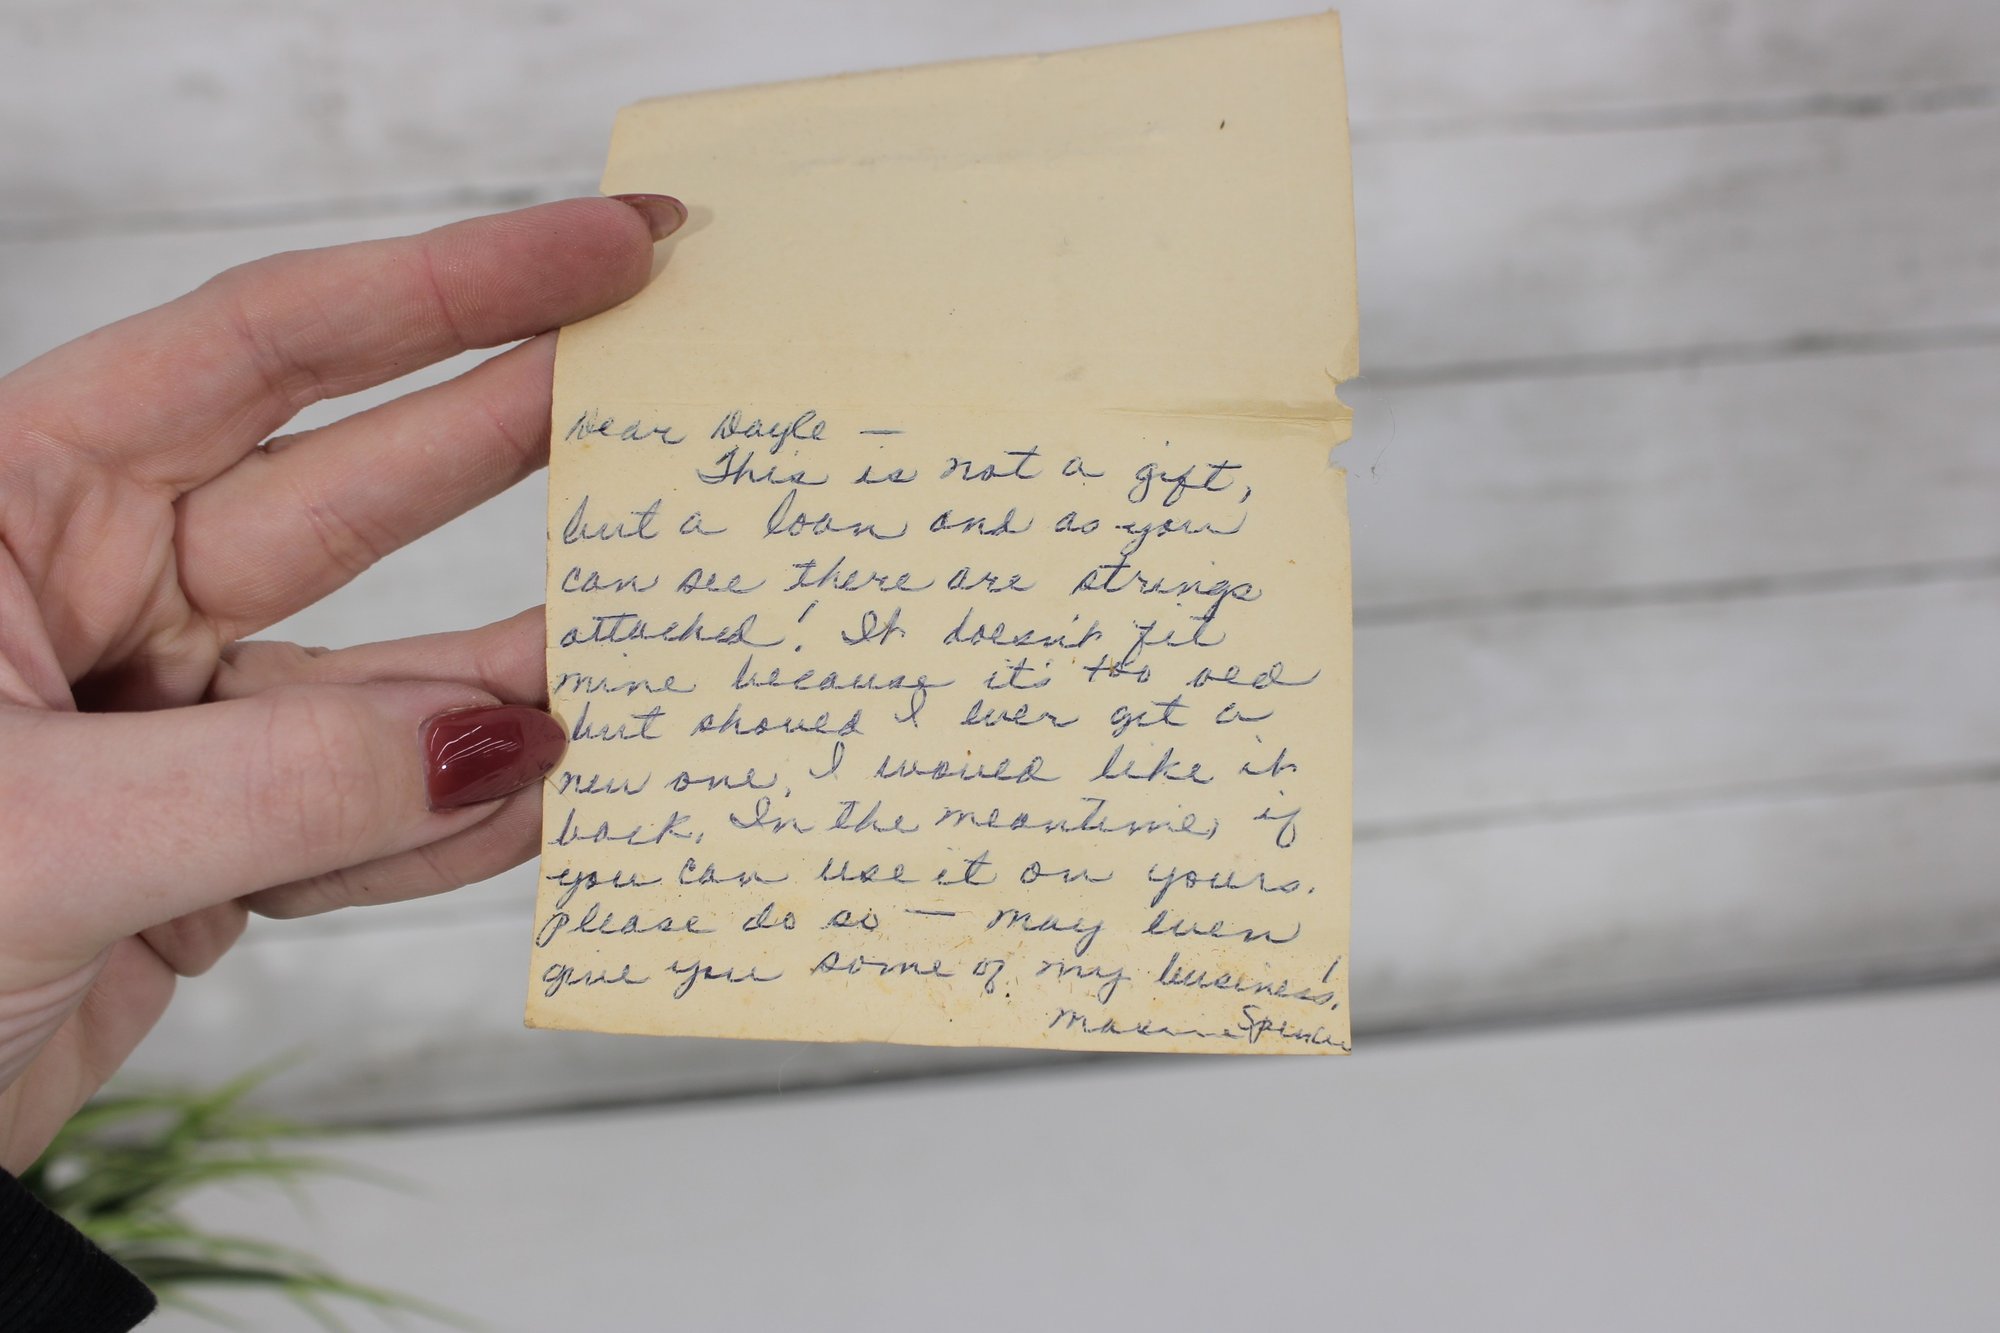 Dear Dayle —
This is not a gift,
but a loan and as you
can see there are strings
attached! It doesn't fit
mine because it's too old
but should I ever get a
new one, I would like it
back. In the meantime, if
you can use it on yours,
please do so — may even
give you some of my business!
Maxine Spencer